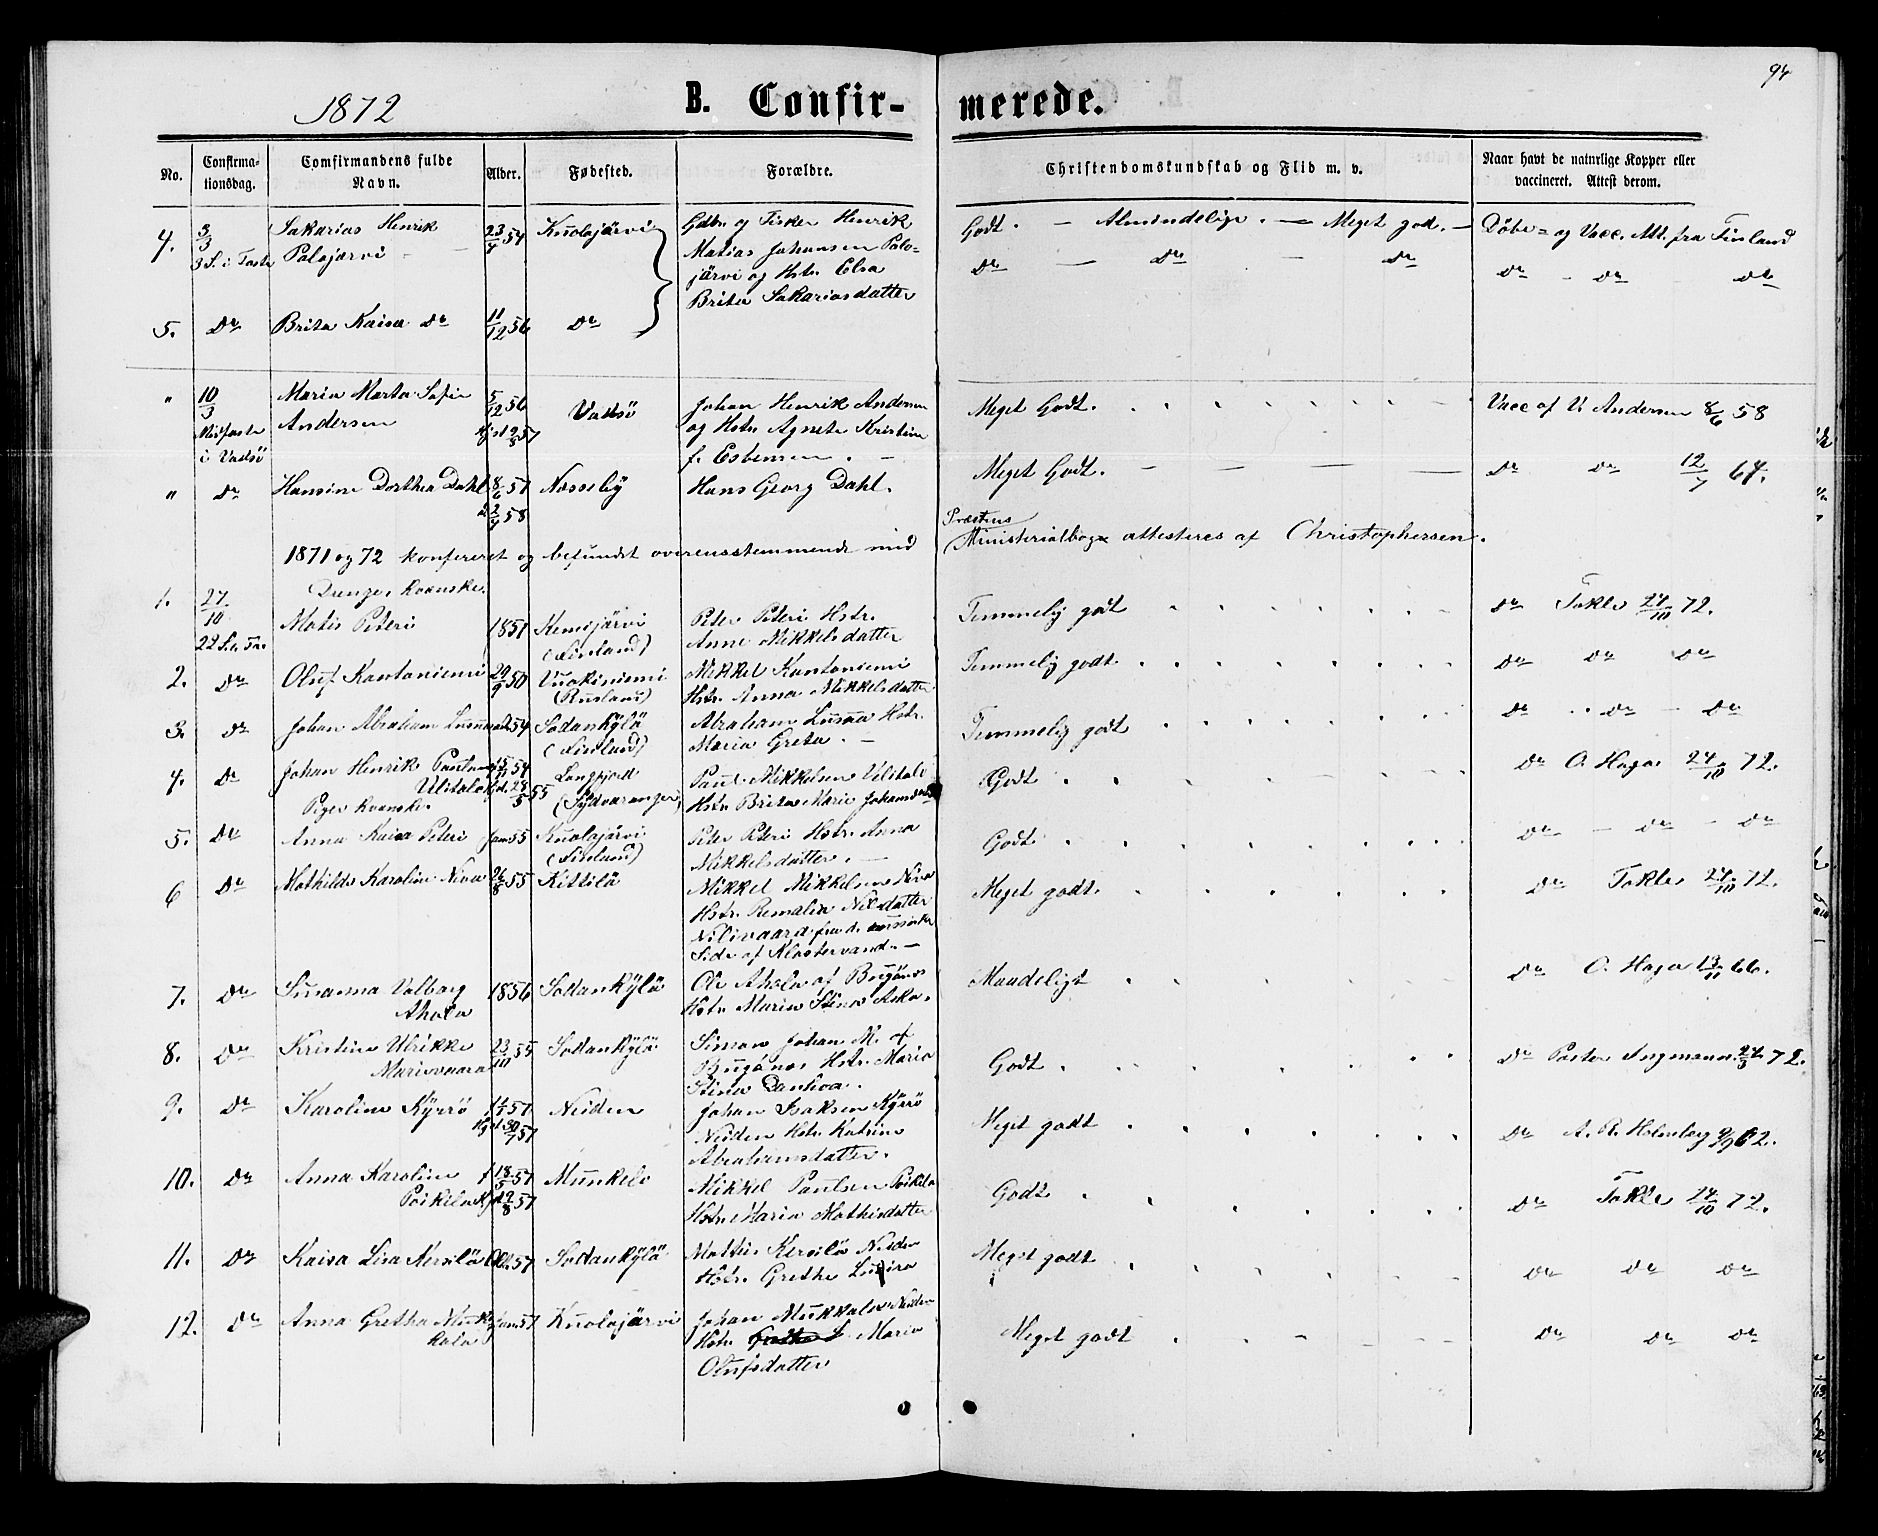 1872 B. Confir- merede. 94
No. Confirma-tionsdag. Comfirmandens fulde Navn. Alder. Fødested. Forældre. Christendomskundskab og Flid m. v. Naar havt de naturlige Kopper eller vaccineret. Attest derom.
4. 3/3 Sakarias Henrik 23/4 54 Kuolajärvi Gdbr. og Fisker Henrik Godt. — Almindelige. — Meget god. — Døbe= og Vacc. Att. fra Finland
3 S. i Faste Palojärvi Matias Johansen Palo-
järvi og Hstr. Elsa Do — Do — Do Do - Do - Do
Brita Sakariasdatter
5. Do Brita Kaisa Do 11/12 56 Do
" 10/3 Maria Marta Sofie 5/12 56 Vadsö Johan Henrik Andersen Meget Godt. Vacc af V. Andersen 8/6 58
Midfaste Andersen og Hstr. Agnete Kristine
i Vadsö f. Esbensen. —
" Do Hansine Dorthea Dahl 8/6 57 Næsseby Hans Georg Dahl. Meget Godt. — Do Do 12/7 64.
2/4 58
1871 og 72 konfereret og befundet overensstemmende med Præstens Ministerialbog attesteres af Christophersen.
Drenge, Kvænske.
1. 27/10 Matis Peteri 1851 Kemijärvi Peter Peteri Hstr. Temmelig godt Do Takle 24/10 72.
22 S. e. Tr. (Finland) Anne Mikkelsdatter
2. Do Oluf Kantoniemi 29/9 50 Vuokiniemi Mikkel Kantoniemi Temmelig godt. Do Do Do
(Rusland) Hstr. Anna Mikkelsdatter
3. Do Johan Abraham 54 Sodankylä Abraham Hstr. Temmelig godt Do Do Do
(Finland) Maria Greta. —
4. Do Johan Henrik 15/11 54 Langfjord Paul Mikkelsen Ulitalo Godt Do O. Haga 24/10 72.
Ulitalo 28/5 55 (Sydvaranger) Hstr. Brita Marie
Piger Kvænske.
5. Do Anna Kaisa Peteri Jan 55 Kuolajärvi Peter Peteri Hstr. Anna Godt Do - Do - Do
(Finland) Mikkelsdatter. —
6 Do Mathilde Karoline Niva 26/8 55 Kittilä Mikkel Mikkelsen Niva Meget godt. Do Takle 24/10 72.
Hstr. Nilsdatter
fra d. russiske
Side af Klostervand. —
7. Do Susanna Valborg 1856 Sodankylä Ole Ahola af Bugönes Maadeligt Do O. Haga 13/11 66.
Ahola Hstr. Maria Stina
8. Do Kristine Ulrikke 23/10 55 Sodankylä Simon Johan M. af Godt. Do Pastor Ingman 24/3 72.
Marivaara Bugönes Hstr. Maria
Stina
9. Do Karoline Kyrrö 57 Neiden Johan Isaksen Kyrrö Meget godt Do A. R. Holmberg 9/9 62.
Hjd. 30/7 57 Neiden Hstr. Katrine
Abrahamsdatter.
10. Do Anna Karoline 18/5 57 Munkelv Mikkel Paulsen Poikela Godt Do Takle 24/10 72.
Poikela Hjd. 2/8 57 Hstr. Maria Mathisdatter
11. Do Kaisa Lisa Kersilö Okt. 57 Sodankylä Mattis Kersilö Neiden Meget godt Do Do Do
Hstr. Grethe
12. Do Anna Gretha Muk- Jan 57 Kuolajärvi Johan Mukkala Neiden Meget godt Do Do Do
kala Hstr. Maria
Olufsdatter